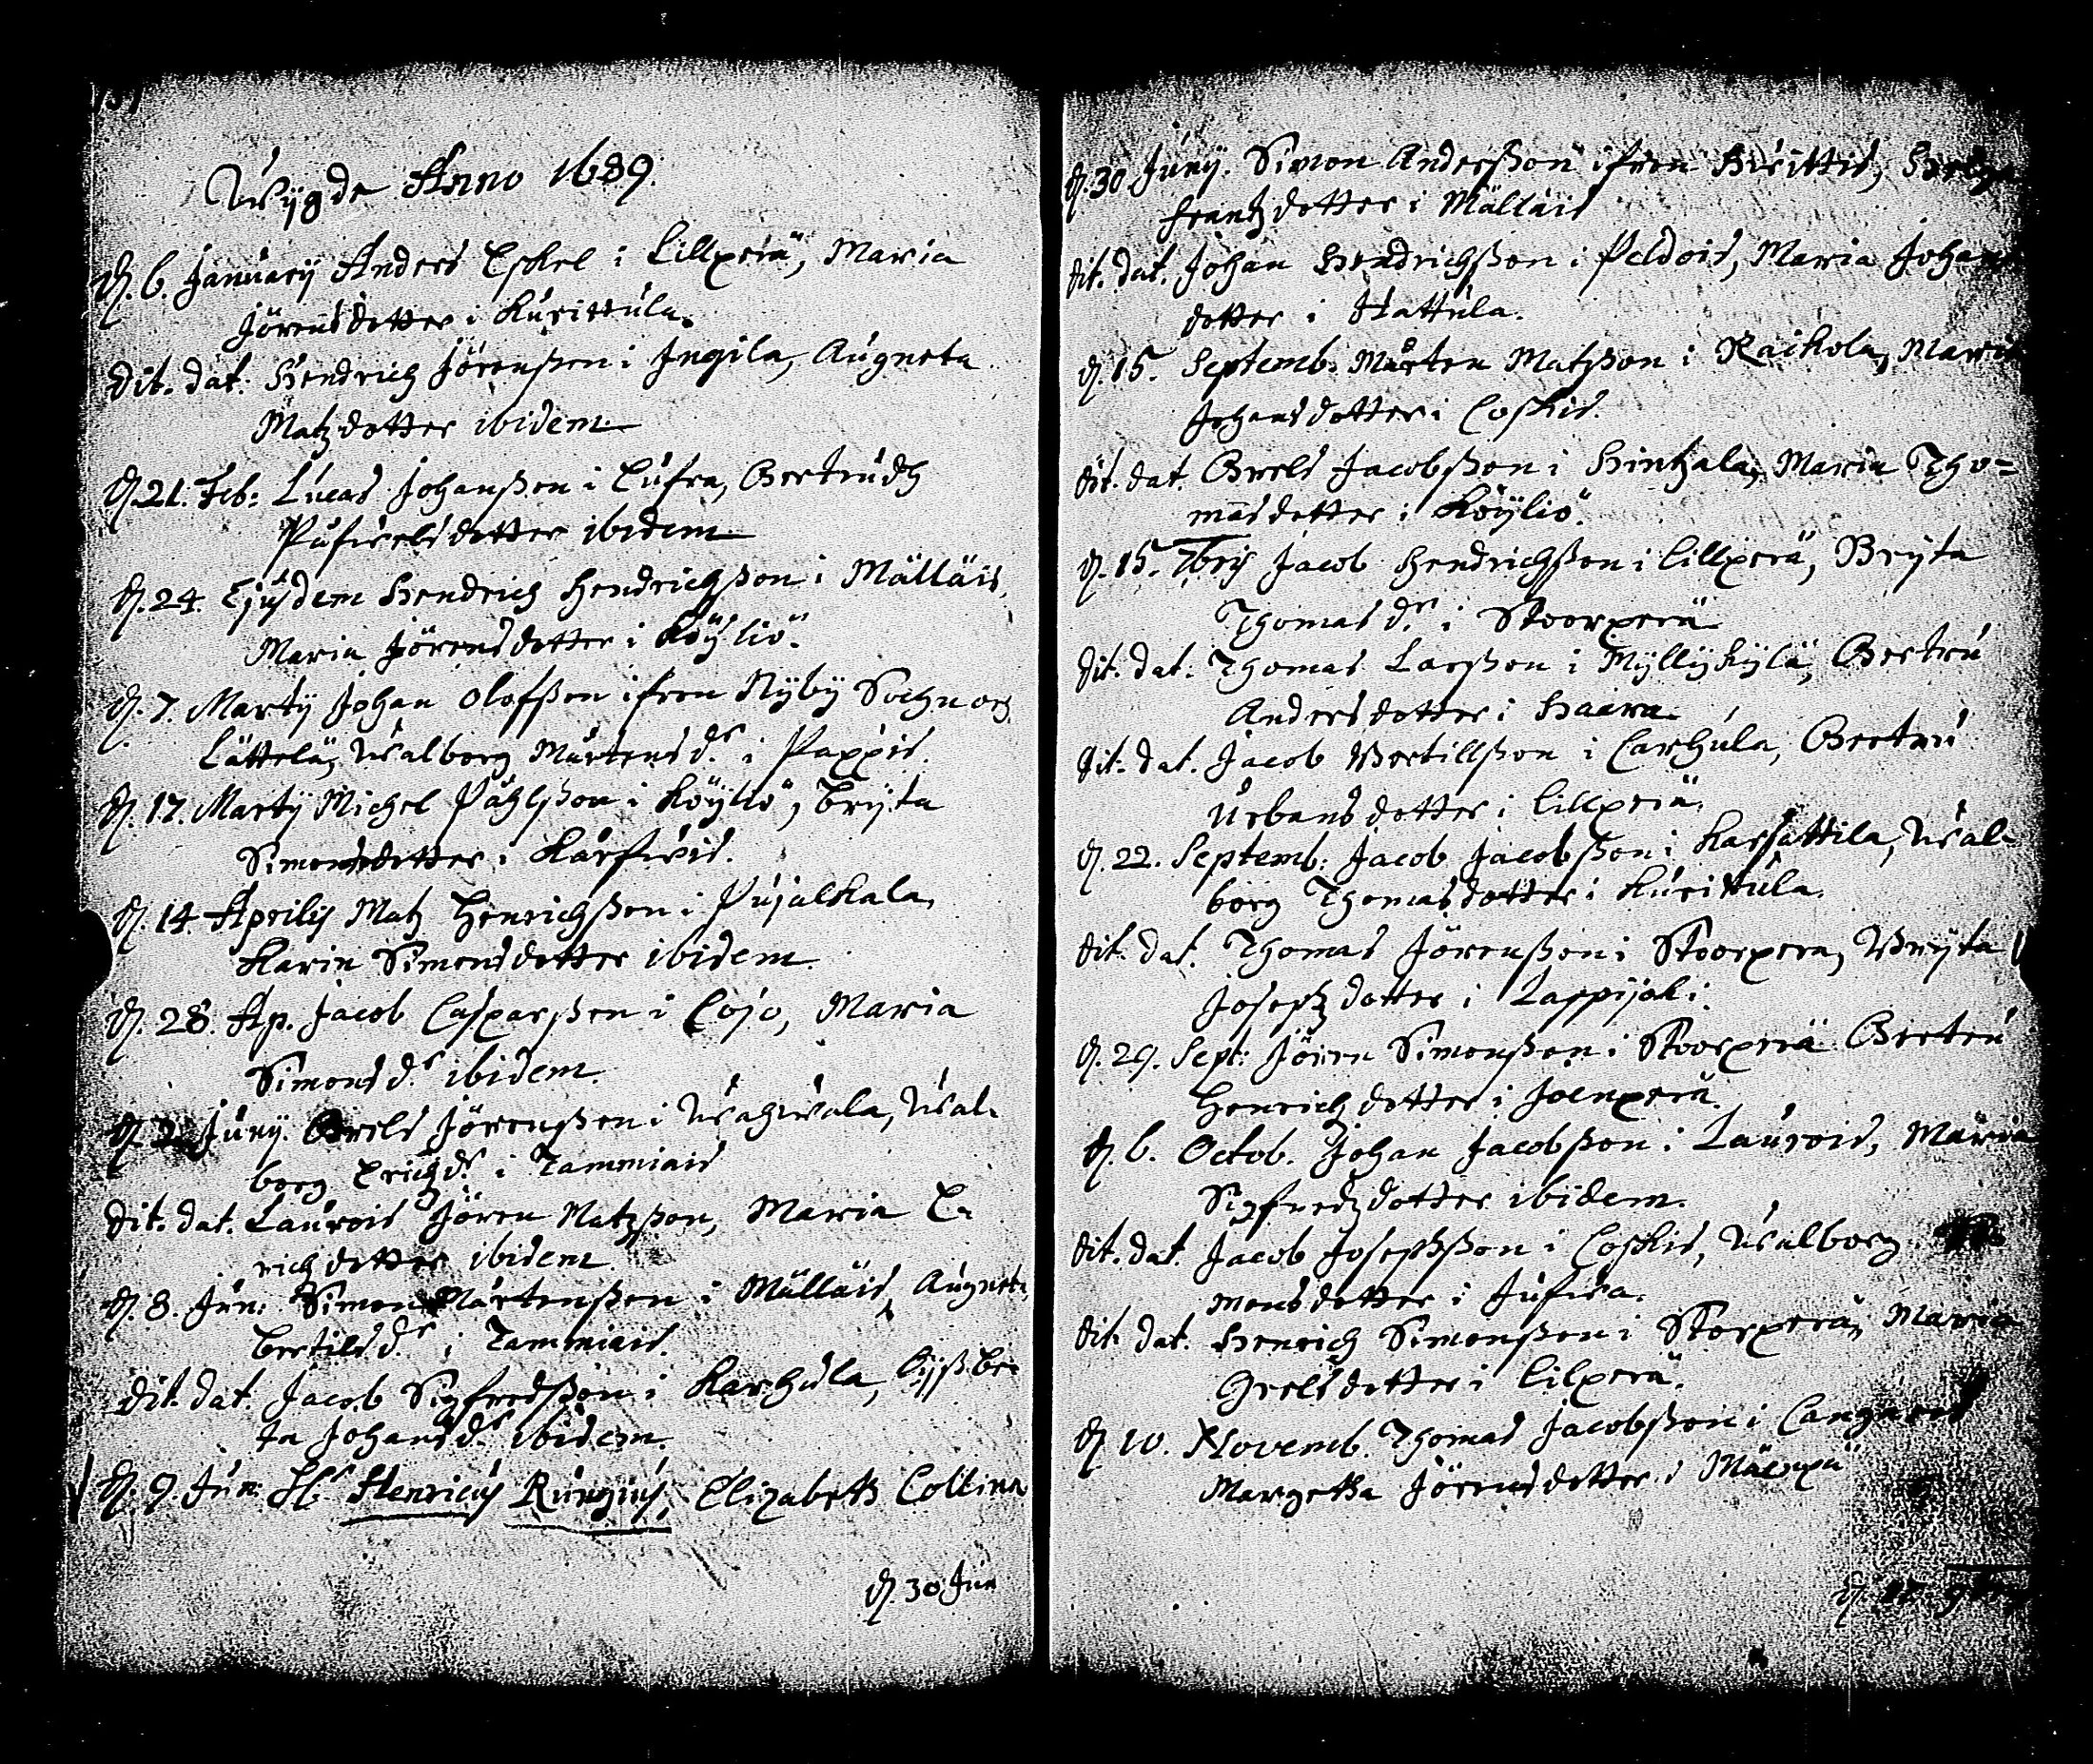 Wijgde Anno 1689.
d. 6. Januarij Anders Eskel i Lillperä, Maria
Jörensdotter i Kurittula.
Dit. dat. Hendrich Jörenßon i Ingila, Augneta
Matzdotter ibidem.
d. 21. Feb: Lucas Johanßon i Eufra, Bertrudh
Påfwelsdotter ibidem
d. 24. Ejusdem Hendrich Hendrichßon i Mälläis,
Maria Jörensdotter i Köyliö.
d. 7. Martij Johan Olofßon ifron Nyby Sochn och
Lättelä, Walborg Mårtensdr. i Pappis.
d. 17. Martij Michel Påhlßon i Köyliö, Bryta
Simonsdotter i Karfwis.
d. 14. Aprilis Matz Henrichßon i Pujalkala,
Karin Simonsdotter ibidem.
d. 28. Ap. Jacob Casparßon i Cojo, Maria
Simonsdr. ibidem.
d. 2. Junij. Grels Jörenßon i Wahwala, Wal-
borg Erichzdr. i Tammiais
Dit. dat. Laurois Jören Matzßon, Maria E-
richdotter ibidem.
d. 8. Jun: Simon Mårtenßon i Mälläis, Augnet
Bertilsdr. i Tammiais.
Dit. dat. Jacob Sigfredßon i Karhula, Lijßbe-
ta Johansdr. ibidem.
d. 9. Jun. H:r Henricus Rungius, Elizabeth Collina
d. 30 Jun
d. 30 Junij. Simon Anderßon ifron Hvittis,
Frantzdotter i Mälläis
dit. dat. Johan Hendrichßon i Peldois, Maria Johans
dotter i Hattula.
d. 15. Septemb: Mårten Matzßon i Raikola, Marit
Johansdotter i Coskis.
dit. dat. Grels Jacobßon i Hintzala, Maria Tho=
masdotter i Köyliö.
d. 15. 7bris Jacob Hendrichßon i Lillperä, Bryta
Thomasdr. i Stoorperä
dit. dat. Thomas Larßon i Myllykylä, Bertru
Andersdotter i Haawa.
dit. dat. Jacob Bertillßon i Carhula, Bertru
Urbansdotter i Lillperä.
d. 22. Septemb: Jacob Jacobßon i Karsattila, Wal-
borg Thomasdotter i Kurittula.
dit. dat. Thomas Jörenßon i Stoorpera, Bryta
Josephzdotter i Lappijoki.
d. 29. Sept: Jören Simonßon i Stoorperä Bertru
Henrichzdotter i Joenperä.
d. 6. Octob. Johan Jacobßon i Laurois, Maria
Sigfredzdotter ibidem.
dit. dat. Jacob Josephßon i Coskis, Walborg
monsdotter i Jufwa.
dit. dat. Henrich Simonßon i Storperä, Maria
Grelsdotter i Lilperä.
d. 10. Novemb. Thomas Jacobßon i
Margetha Jörensdotter i